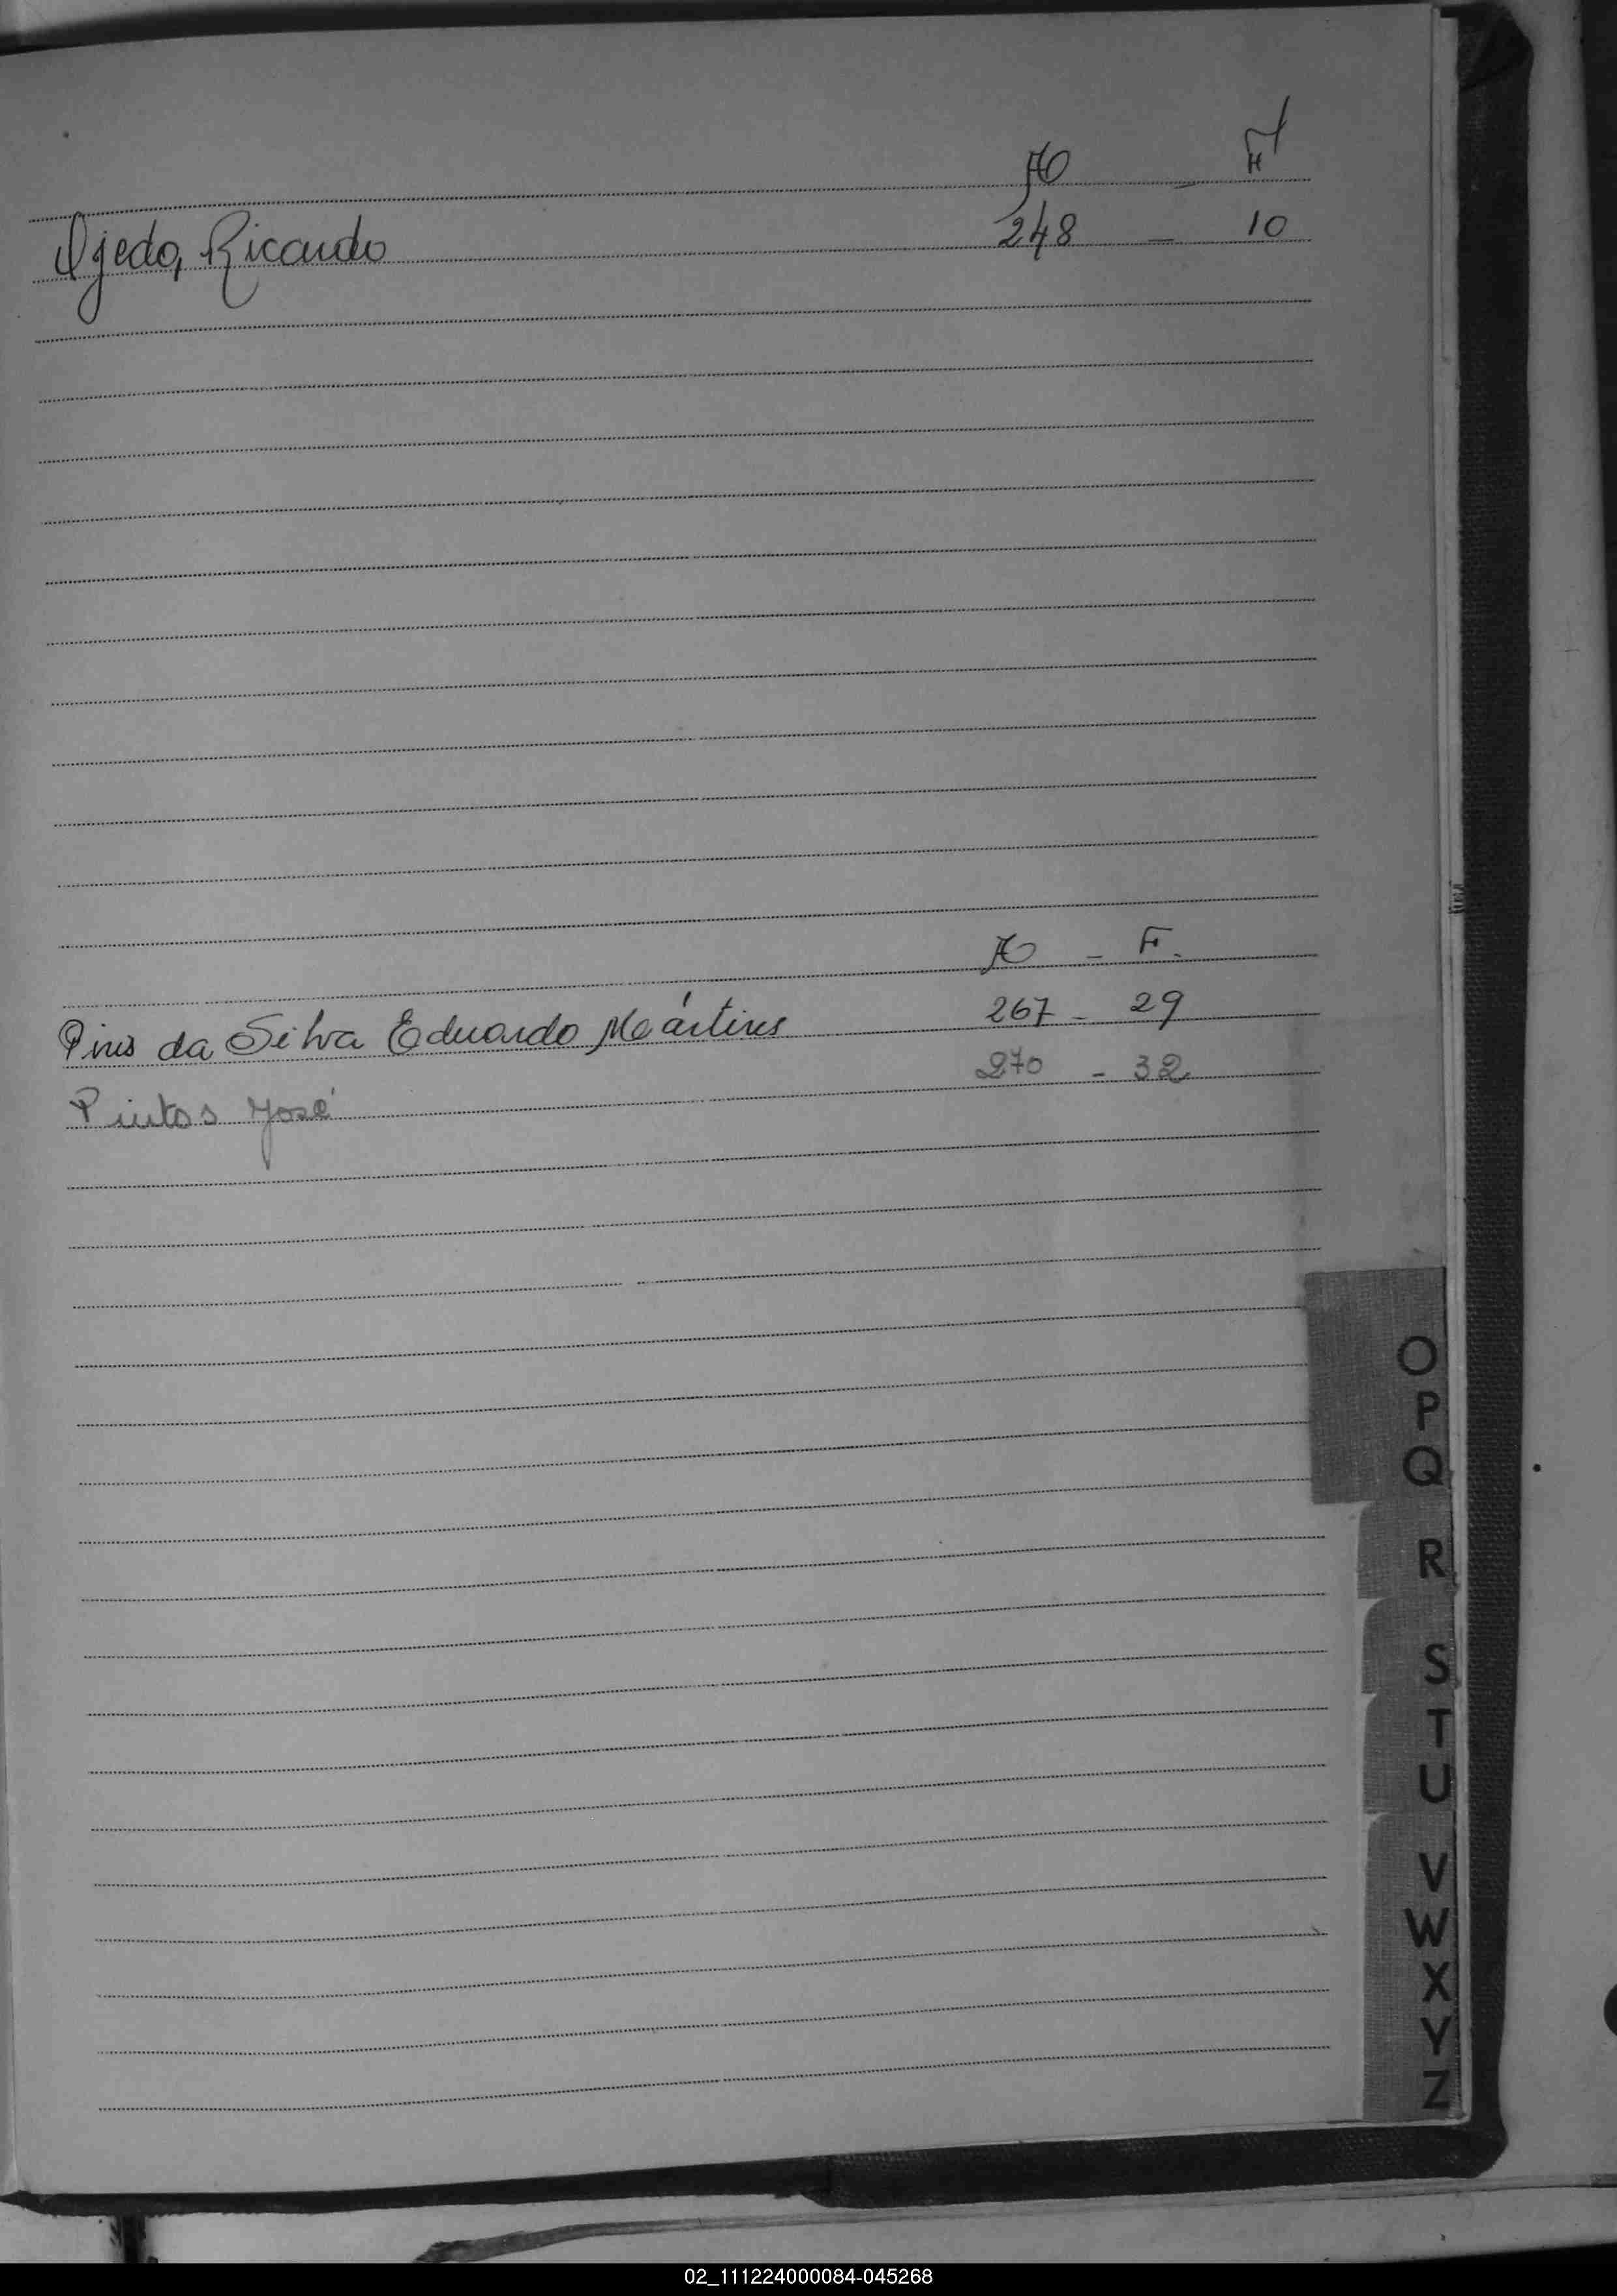 A - F
Ojeda, Ricardo 248 - 10
A - F.
Pires da Silva Eduardo Mártires 267 - 29
Pintos José 270 - 32
O
P
Q
R
S
T
U
V
W
X
Y
Z
02_111224000084-045268